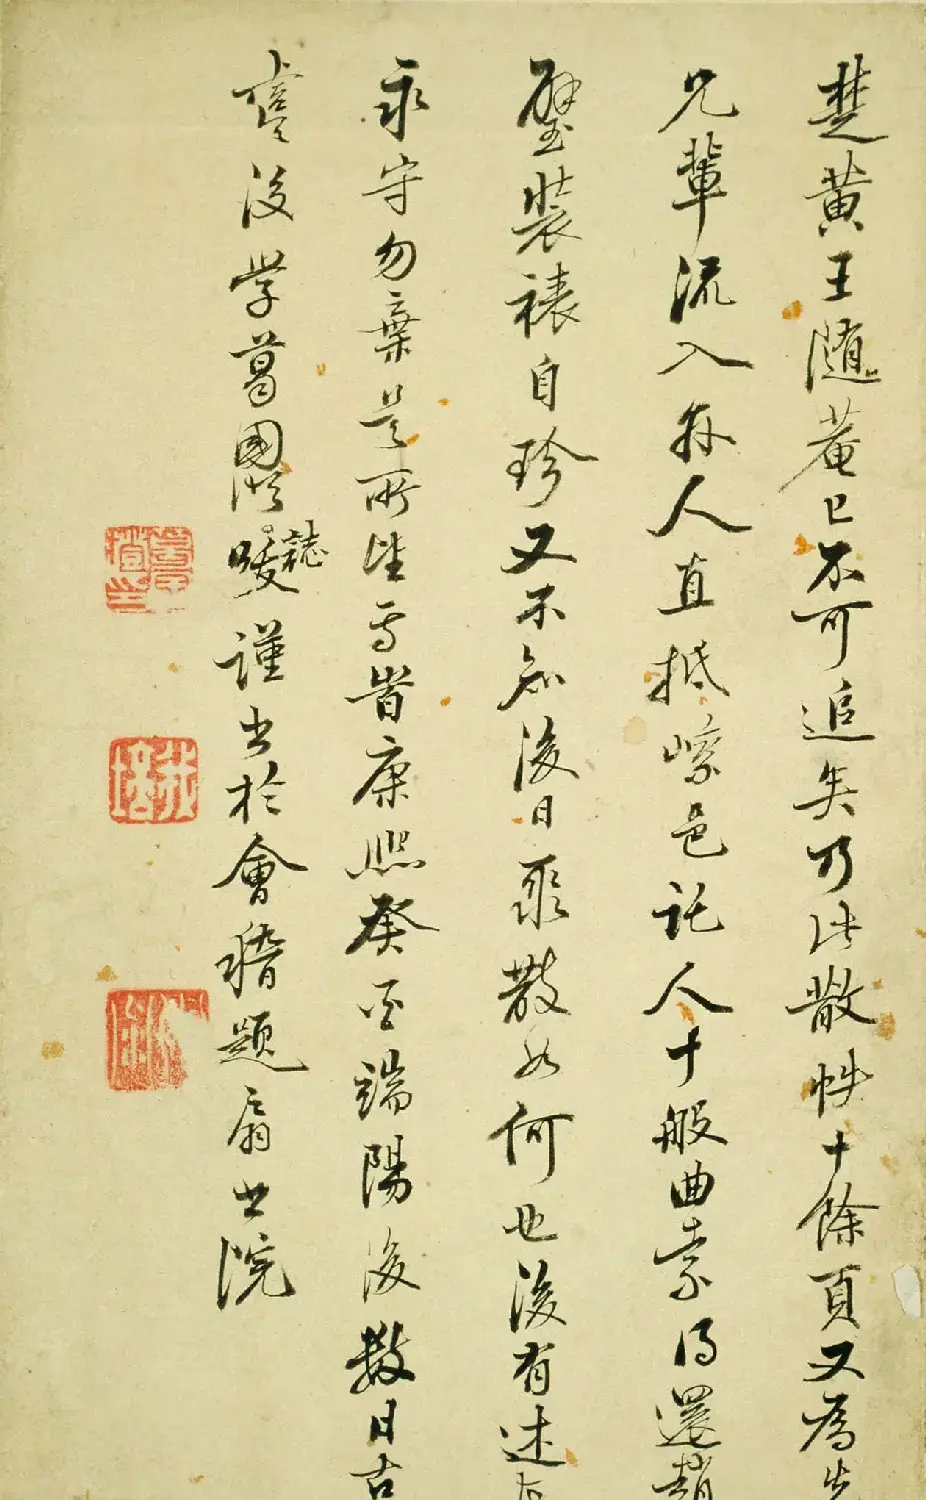 楚黄王隨菴已不可追矣乃此散帙十餘頁又為先
兄輩流入好人直抵嵊邑託人十般曲索得還趙
璧装裱自珍又不知後日聚散如何也後有述
永守勿棄是所望焉時康熙癸酉端陽後數日古
虞後學葛國誌謹書於會稽題扇書院